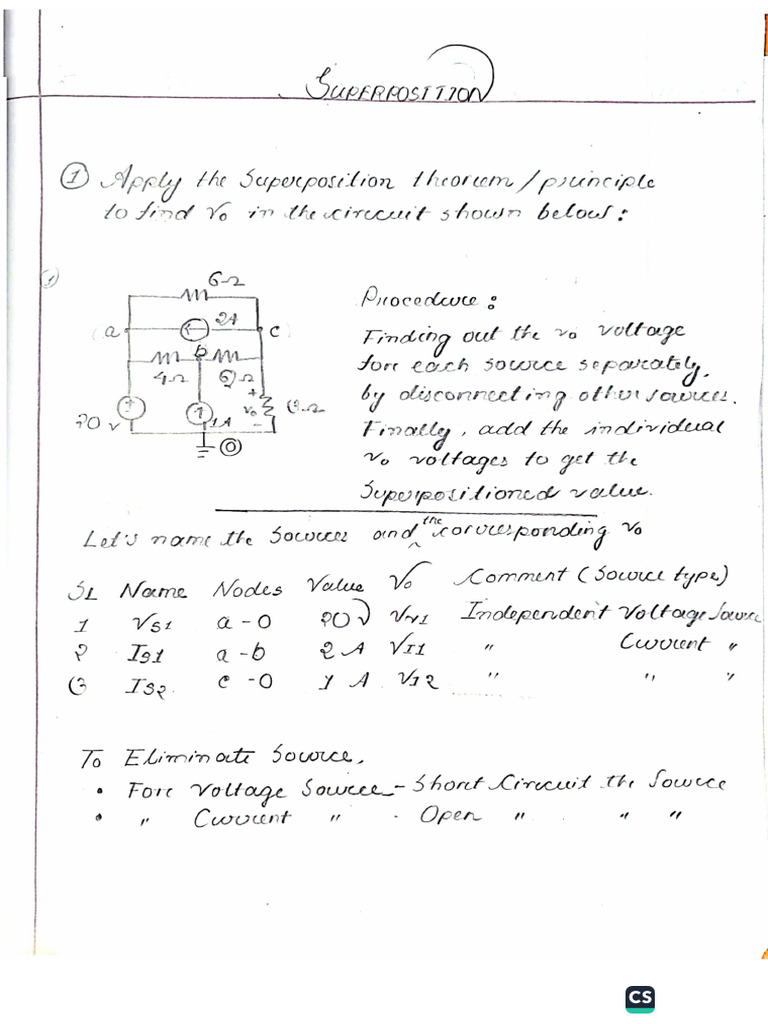 SUPERPOSITION
① Apply the Superposition theorem / principle
to find Vo in the circuit shown below:
6Ω
2A
a
c
b
4Ω
20 V
1A
+
Vo
-
3Ω
0
Procedure:
Finding out the vo voltage
for each source separately,
by disconnecting other sources.
Finally, add the individual
vo voltages to get the
Superpositioned value.
Let's name the Sources and the corresponding vo
SL Name Nodes Value Vo Comment (Source type)
1 VS1 a-0 20V VV1 Independent Voltage Source
2 IS1 a-b 2 A VI1 " Current "
3 IS2 c-0 1 A VI2 " " "
To Eliminate Source,
• For Voltage Source - Short Circuit the Source
• " Current " - Open " " "
CS